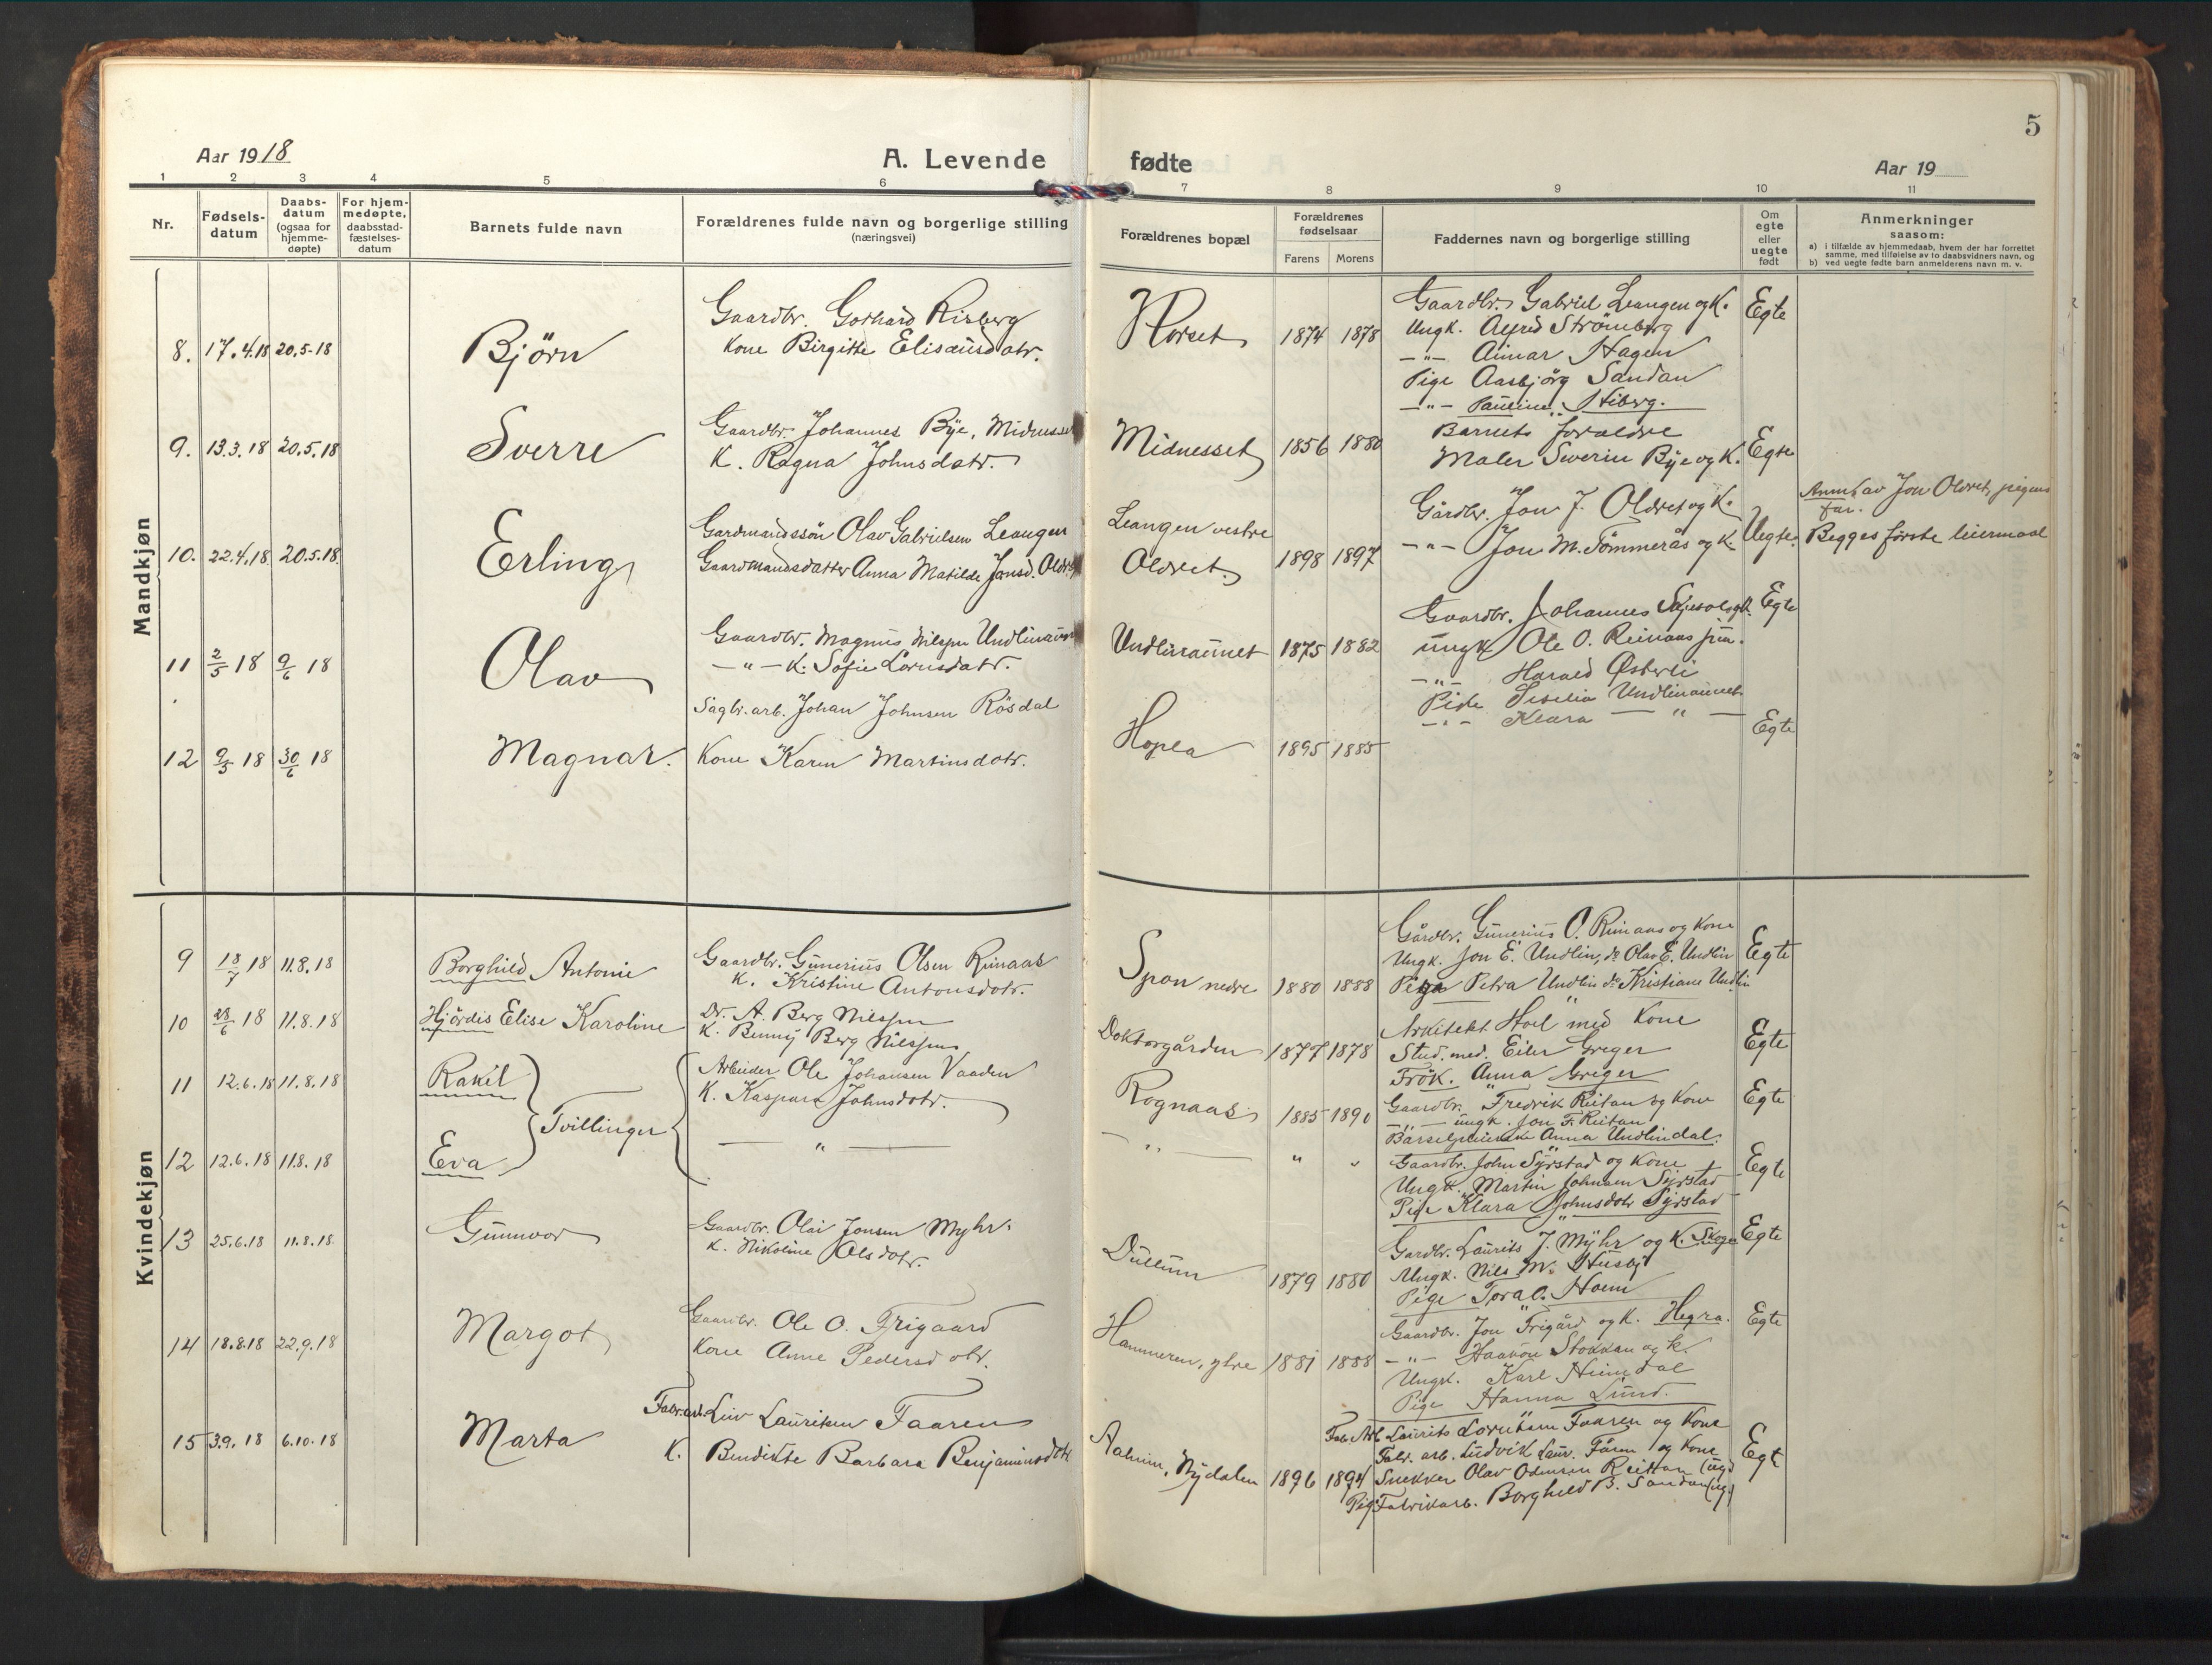 Aar 1918
A. Levende
1 2 3 4 5 6
Nr.
Fødsels-
datum
Daabs-
datum
(ogsaa for
hjemme-
døpte)
For hjem-
medøpte,
daabsstad-
fæstelses-
datum
Barnets fulde navn
Forældrenes fulde navn og borgerlige stilling
(næringsvei)
Mandkjøn
8. 17.4.18 20.5.18 Björn
Gaardbr. Gothard Risberg
Kone Birgitte Elisæusdatr.
9. 13.3.18 20.5.18 Sverre
Gaardbr. Johannes Bye, Midnesset
K. Ragna Johnsdatr.
10. 22.4.18 20.5.18. Erling
Gardmandssön Olav Gabrielsen Leangen
Gaardmandsdatter Anna Matilde Jonsd. Oldret
11 2/5 18 9/6 18 Olav
Gaardbr. Magnus Nilssen Undlinaunet
—"— K. Sofie Lornsdatr.
12 9/5 18 30/6 18 Magnar.
Sagbr. arb. Johan Johnsen Rösdal
Kone Karen Martinsdatr.
Kvindekjøn
9 18/7 18 11.8.18 Borghild Antonie
Gaardbr. Gunerius Olsen Rinaas
K. Kristine Antonsdotr.
10 28/6 18 11.8.18 Hjördis Elise Karoline
Dr. A. Berg Nilssen
K. Benny Berg Nilssen
11 12.6.18 11.8.18 Rakil
Tvillinger
Arbeider Ole Johansen Vaaden
K. Kaspara Johnsdotr.
12 12.6.18 11.8.18 Eva
— " —
13 25.6.18 11.8.18 Gunnvor
Gaardbr. Olai Jonsen Myhr.
K. Nikoline Olsdotr.
14 18.8.18 22.9.18 Margot
Gaardbr. Ole O. Trigaard
Kone Anne Pedersdotr.
15 3.9.18 6.10.18 Marta
Fabr. arb. Leiv Lauritsen Faaren
K. Bendikte Barbara Benjaminsdotr
5
fødte
Aar 19
7 8 9 10 11
Forældrenes bopæl
Forældrenes
fødselsaar
Farens Morens
Faddernes navn og borgerlige stilling
Om
egte
eller
uegte
født
Anmerkninger
saasom:
a) i tilfælde av hjemmedaab, hvem der har forrettet
samme, med tilføielse av to daabsvidners navn, og
b) ved uegte fødte barn anmelderens navn m. v.
Horset 1874 1878
Gaardbr. Gabriel Leangen og K.
Ungk. Alfred Strömberg
—"— Aimar Hagen
Pige Aasbjörg Sandan
—"— Pauline Stiberg.
Egte
Midnesset 1856 1880
Barnets forældre
Maler Severin Bye og K.
Egte
Leangen vestre
Oldret. 1898 1897
Gårdbr. Jon J. Oldret og K.
—"— Jon M. Tömmerås og K.
Uegte.
Anm. av Jon Oldret, pigens
far.
Begges første leiermaal
Undlinaunet 1875 1882
Gaardbr. Johannes og K.
ungk Ole O. Reinaas jun.
—"— Harald Østerli
Pige Undlinaunet
—"— Klara — " —
Egte
Hopla 1895 1885
Egte
Spon nedre 1880 1888
Gårdbr. Gunerius O. Rimaas og Kone
Ungk. Jon E. Undlin, do Olav E. Undlin
Piga Petra Undlin do Kristiane Undlin
Egte
Doktorgården 1877 1878
Arkitekt Hoel med Kone
Stud. med. Eiler Greger
Frök. Anna Greger
Egte
Rognaas 1885 1890
Gaardbr. Fredrik Reitan og Kone
—"— ungk. Jon F. Reitan
Anna Undlindal.
Egte
—"— " "
Gaardbr. John Syrstad og Kone
Ungk. Martin Johnsen Syrstad
Pige Klara Johnsdotr Syrstad
Egte
Dullum 1879 1880
Gardbr. Laurits J. Myhr og K. Skogn
Ungk. Nils M. Husby
Pige Tora O. Hoem
Egte
Hammeren, ytre 1881 1888
Gaardbr. Jon Trigård og K. Hegra.
—"— Haakon Stokkan og K.
Ungk. Karl Heimdal
Pige Hanna Lund.
Egte
Aalmin, Nydalen 1896 1894
Fab. Arb. Laurits Lorntsen Faaren og Kone
Fabr. arb. Ludvik Laur. Fåren og Kone
Snekker Olav Odinsen Reitan (ug)
Pige Fabrikarb. Borghild B. Sandan (ug.)
Egte